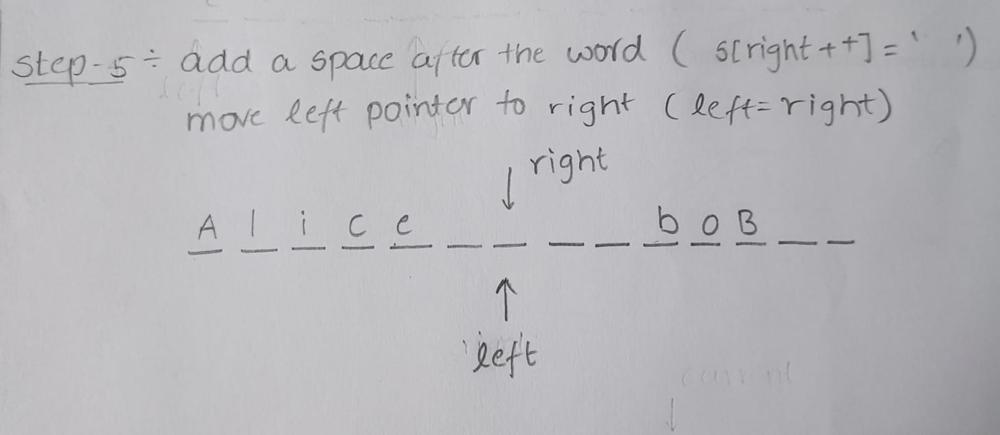 Step-5 ÷ add a space after the word ( s[right++]=' ')
move left pointer to right (left=right)
right
A l i c e _ _ _ _ b o B _ _
left
current